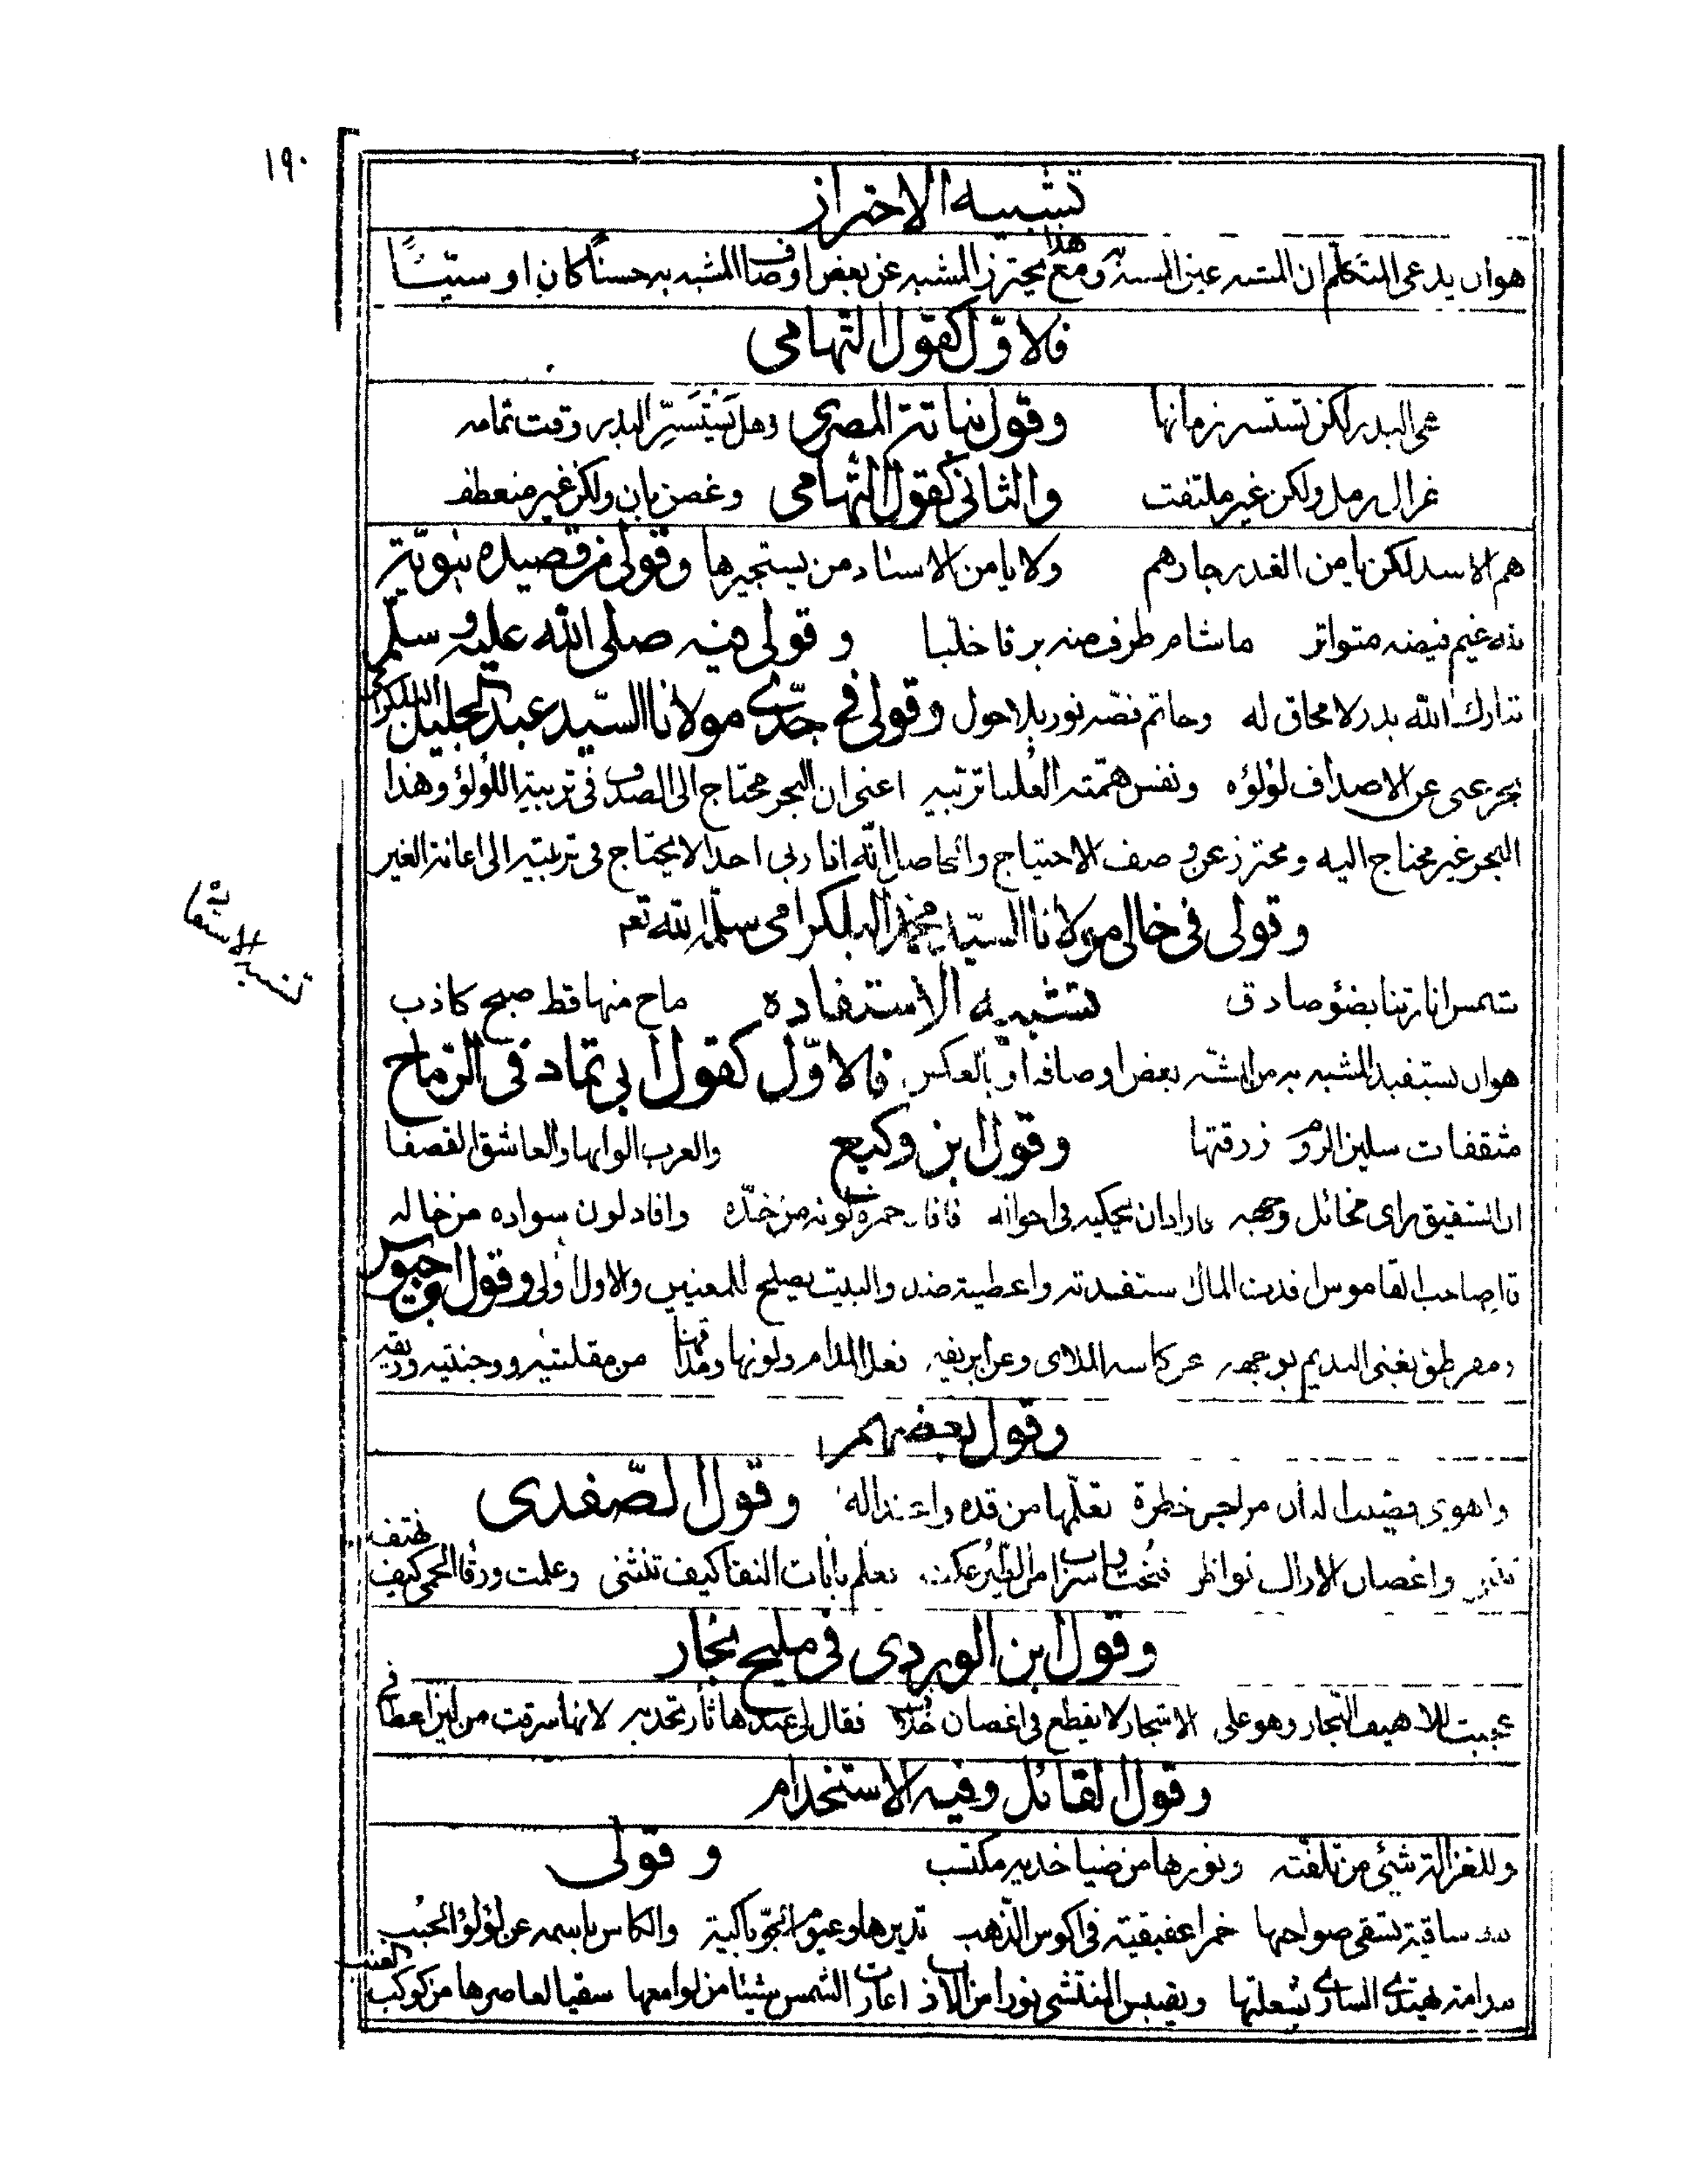 ١٩٠
تشبيه الاحتراز
هو ان يدعى المتكلم ان المشبه عين المشبه به ومع هذا يحترز المشبه عن بعض اوصاف المشبه به حسنًا كان او سيّئًا
فالاوّل كقول التهامى
هى البدر لكن تستسر زمانها وقول نباتة المصرى وهل يَسْتَسِرّ البدر وقت تمامه
غزال رمل ولكن غير ملتفت والثانى كقول التهامى وغصن بان ولكن غير منعطف
هم الاسد لكن يامن الغدر جارهم ولا يامن الاساد من يستجيرها وقولى من قصيده نبويّة
غيم فيضه متواتر ما شام طرف منه برقا خلّبا وقولى فيه صلى الله عليه وسلّم
تبارك الله بدر لا محاق له وخاتم فصّه نور بلا حول وقولى فى جدّى مولانا السّيد عبد الجليل البلكرامى
بحر عن الاصداف لؤلؤه ونفس همّته العُليا تربيه اعنى ان البحر محتاج الى الصدف فى تربية اللّولؤ وهذا
البحر غير محتاج اليه ومحترز عن وصف الاحتياج والحاصل انّه اذا ربى احدا لا يحتاج فى تربيته الى اعانة الغير
وقولى فى خالى مولانا السيّد محمد البلكرامى سلّمه الله تعـ
تشبيه الاستفادة
شمس انارتنا بضوٴ صادق تشبيه الاستفاده ما لاح منها قط صبح كاذب
هو ان يستفيد المشبه به من المشبّه بعض اوصافه او بالعكس فالاوّل كقول ابى تمام فى الرّماح
مثقفات سلبن الروم زرقتها وقول ابن وكيع والعرب الوانها والعاشق القصفا
ان الشقيق راى مخائل وجهه فاراد ان يحكيه فى احواله حمرة لونه من خدّه وافاد لون سواده من خاله
قال صاحب القاموس افدت المال استفدته واعطيته ضد والبيت يصلح للمعنيين والاول اولى وقول ابن حيوس
ومقرطق يغنى النديم بوجهه عن كاسه الملاى وعن ابريقه فعل المدام ولونها ومذاقها من مقلتيه ووجنتيه وريقه
وقول بعضهم
واهوى خطرة تعلّمها من قده واعتداله وقول الصّفدى
واغصان الاراك نواظر تعلّم بانات النقا كيف تنثنى وعلمت ورقاء الحمى كيف تهتف
وقول ابن الوردى فى مليح نجّار
عجبت للاهيف النجّار وهو على الاشجار لا يقطع فى اغصان فقال لى عندها ثار تحدبه لانها سرقت من لين اعطافى
وقول القائل وفيه الاستخدام
وللغزالة شئى من تلفته ونورها من ضيا خديه مكتسب وقولى
ساقية تسقى صواحبها خمرا عقيقية فى اكوس الذّهب تديرها وعيون الجوّ باكية والكاس باسمه عن لؤلؤ الحبب
مدامة يهتدى السارى بشعلتها ويقبس المنتشى نورا من اعارت الشمس شيئا من لوامعها سقيا لعاصرها من كوكب العنب